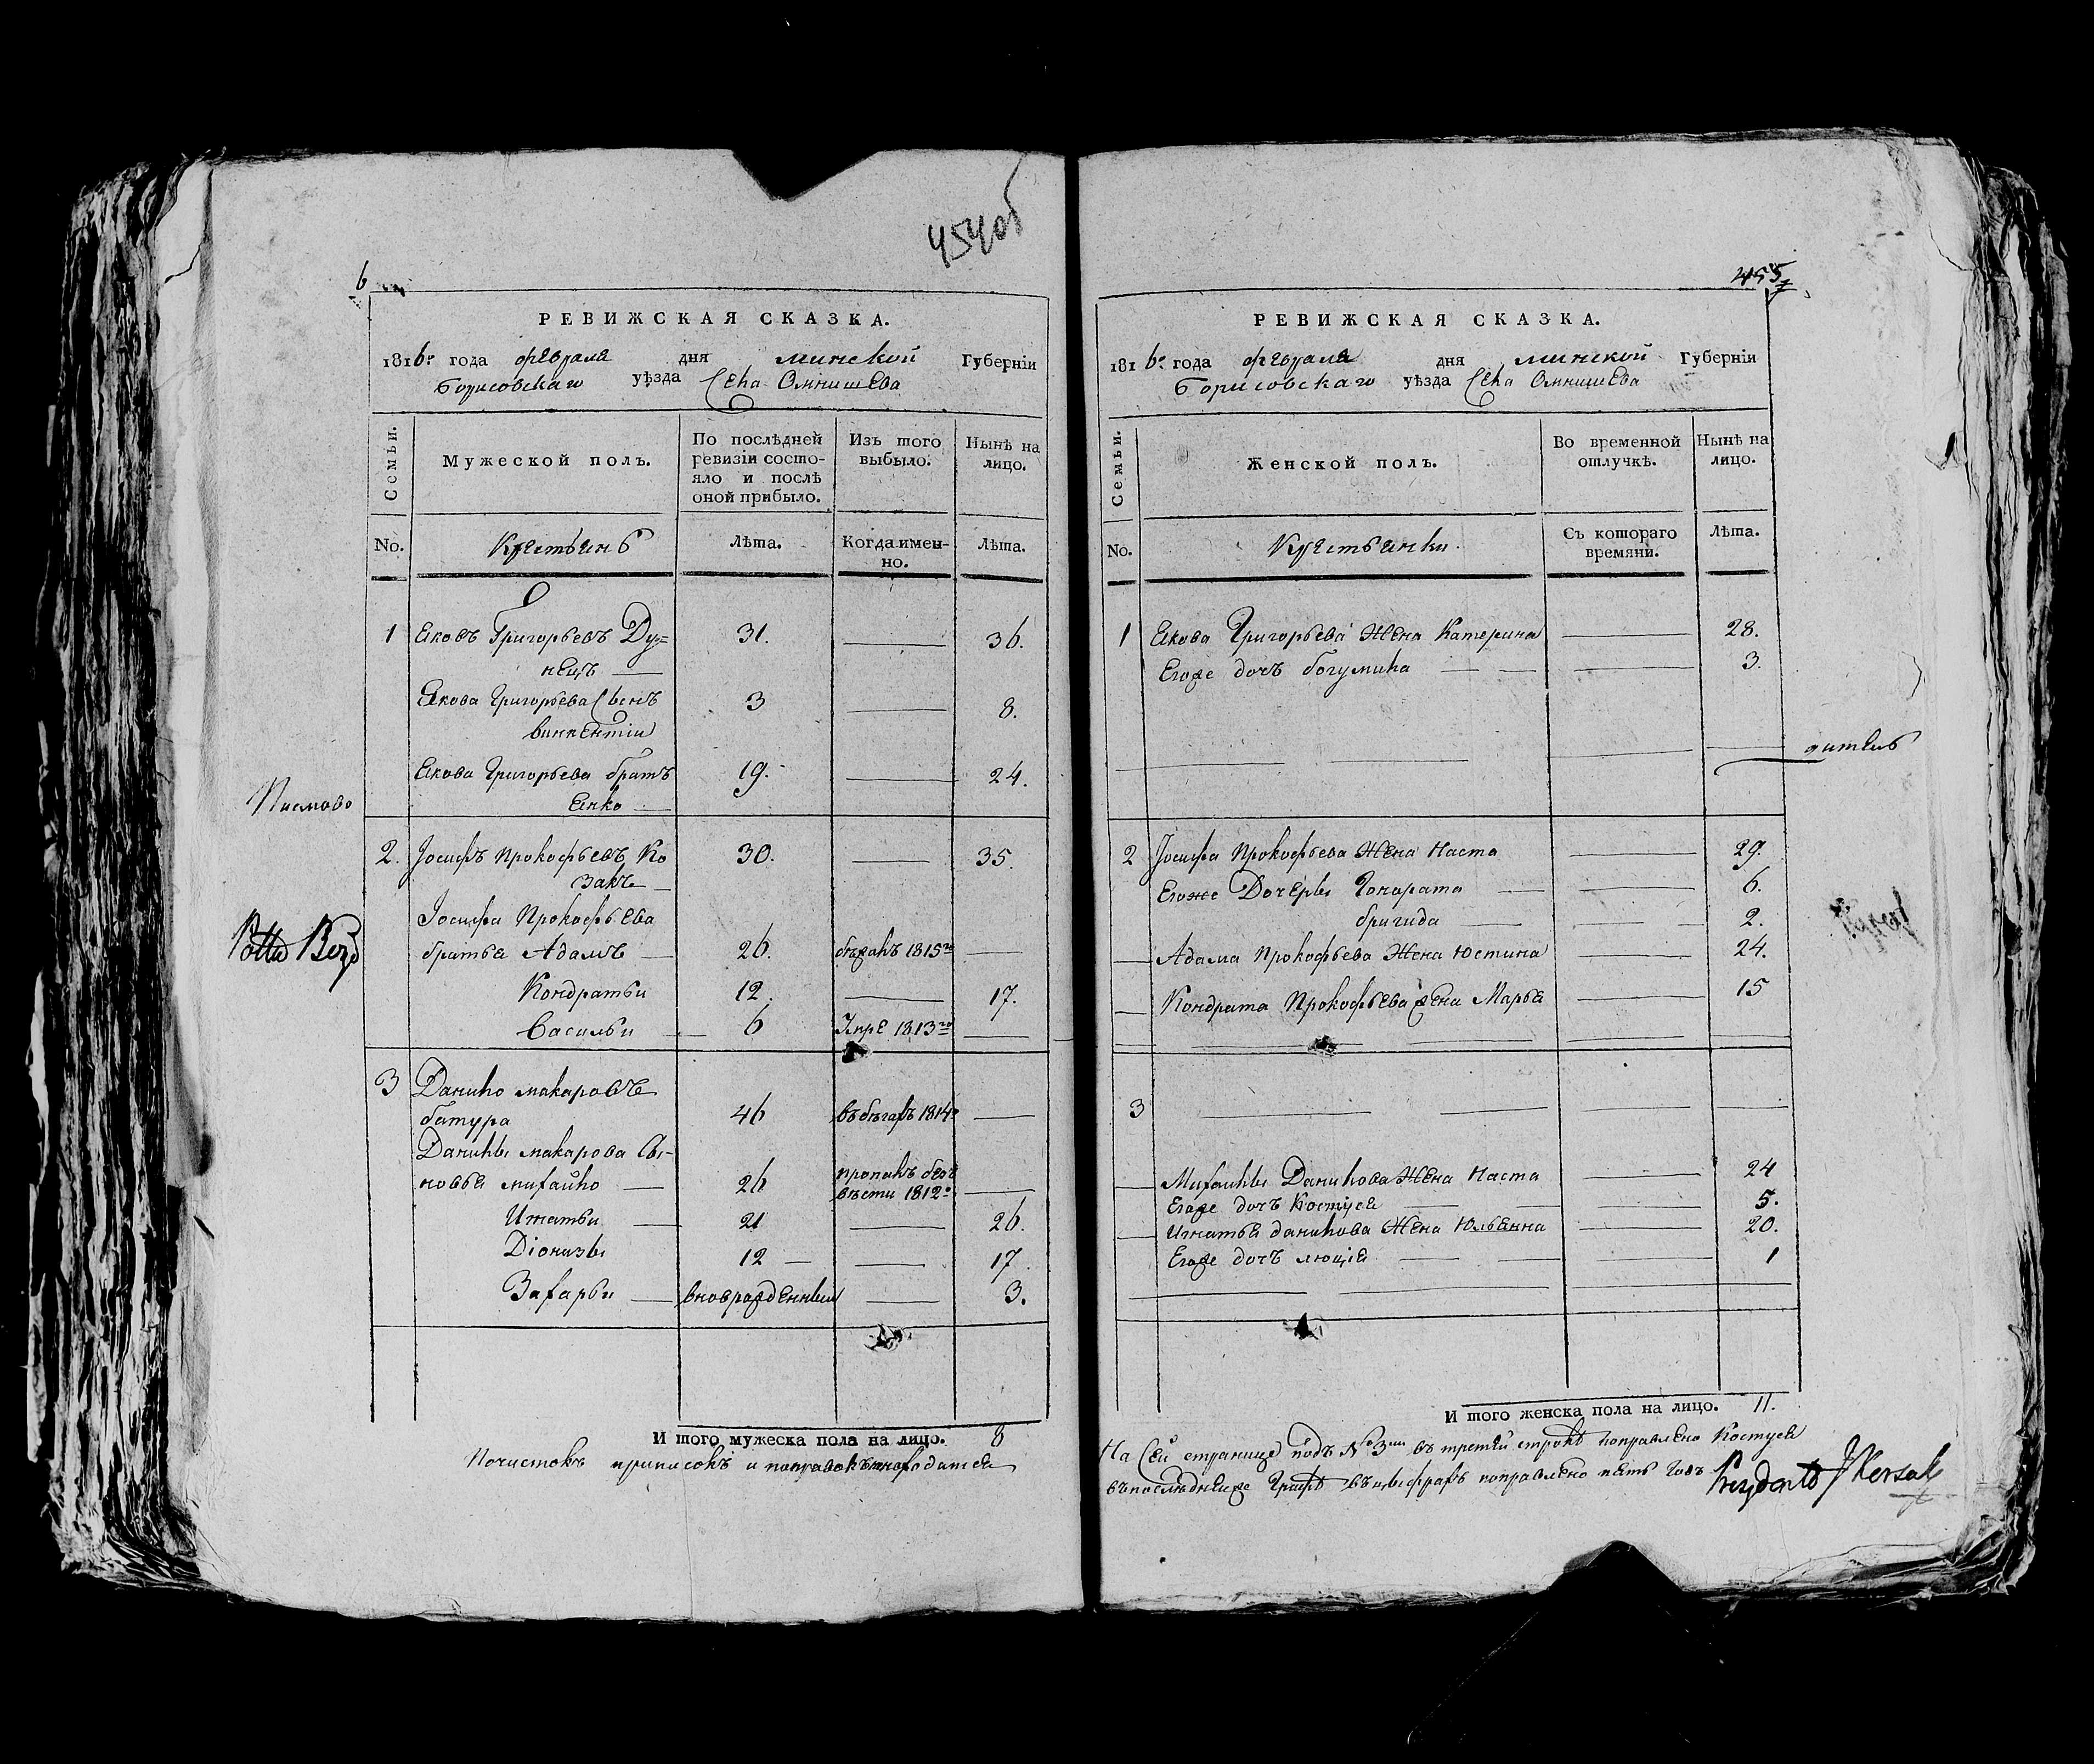 454об
6
РЕВИЖСКАЯ СКАЗКА.
1816го года февраля дня минской Губерніи
Борисовскаго уѣзда Села Омнишева
Семьи.
Мужеской полъ.
По послѣдней ревизіи состо-
яло и послѣ оной прибыло.
Изъ того выбыло.
Нынѣ на лицо.
No.
Крестьянъ
Лѣта.
Когда имен-
но.
Лѣта.
1 Яковъ Григорьевъ Ду= 31. — 36.
нецъ —
Якова Григорьева Сынъ 3 — 8.
винцентіи
Якова Григорьева братъ 19. — 24.
Янко —
2. Іосифъ Прокофьевъ Ко 30. — 35.
закъ —
Іосифа Прокофьева
братья Адамъ — 26. бѣжалъ 1815го —
Кондратьи 12. — 17.
Васильи — 6 Умре 1813го —
3 Данило макаровъ
батура 46 въ бѣгахъ 1814го —
Данилы макарова Сы-
новья михайло — 26 пропалъ безъ
вѣсти 1812го —
Игнатьи — 21 — 26.
Діонизы 12 — — 17.
Захарьи — вноврожденныи — 3.
И того мужеска пола на лицо. 8
Почистокъ приписокъ и поправокъ ненаходится
455
7
РЕВИЖСКАЯ СКАЗКА.
1816го года февраля дня минской Губерніи
Борисовскаго уѣзда Села Омнишева
Семьи.
Женской полъ.
Во временной отлучкѣ.
Нынѣ на лицо.
No.
Крестьянки.
Съ котораго времяни.
Лѣта.
1 Якова Григорьева Жена Катерина — 28.
Егоже дочъ богумила — — — 3.
2 Іосифа Прокофьева Жена Наста — 29.
Егоже Дочеры Гонората — — 6.
бригида — — 2.
— Адама Прокофьева Жена Юстина — 24.
— Кондрата Прокофьева жена Марья — 15
3 — — — —
— Михаилы Данилова Жена Наста — 24
Егоже дочъ Костуся — — — 5.
— Игнатья данилова Жена Юльянна — 20.
Егоже дочъ люція — — — 1
И того женска пола на лицо. 11.
На Сей странице подъ №3мъ въ третей строкѣ поправлено Костуся
въ последнейже Графѣ въ цыфрахъ поправлено пять Годъ